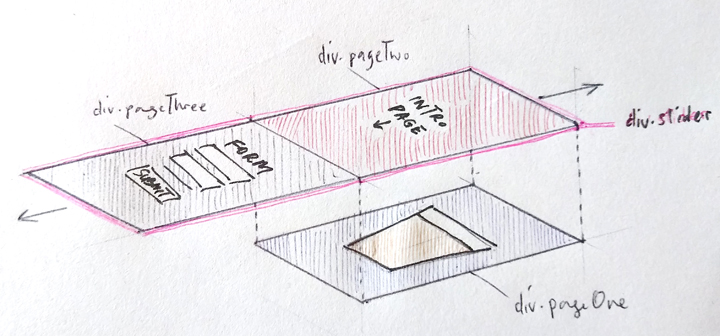 div.pageTwo
div.pageThree
INTRO
PAGE
div.slider
FORM
SUBMIT
div.pageOne